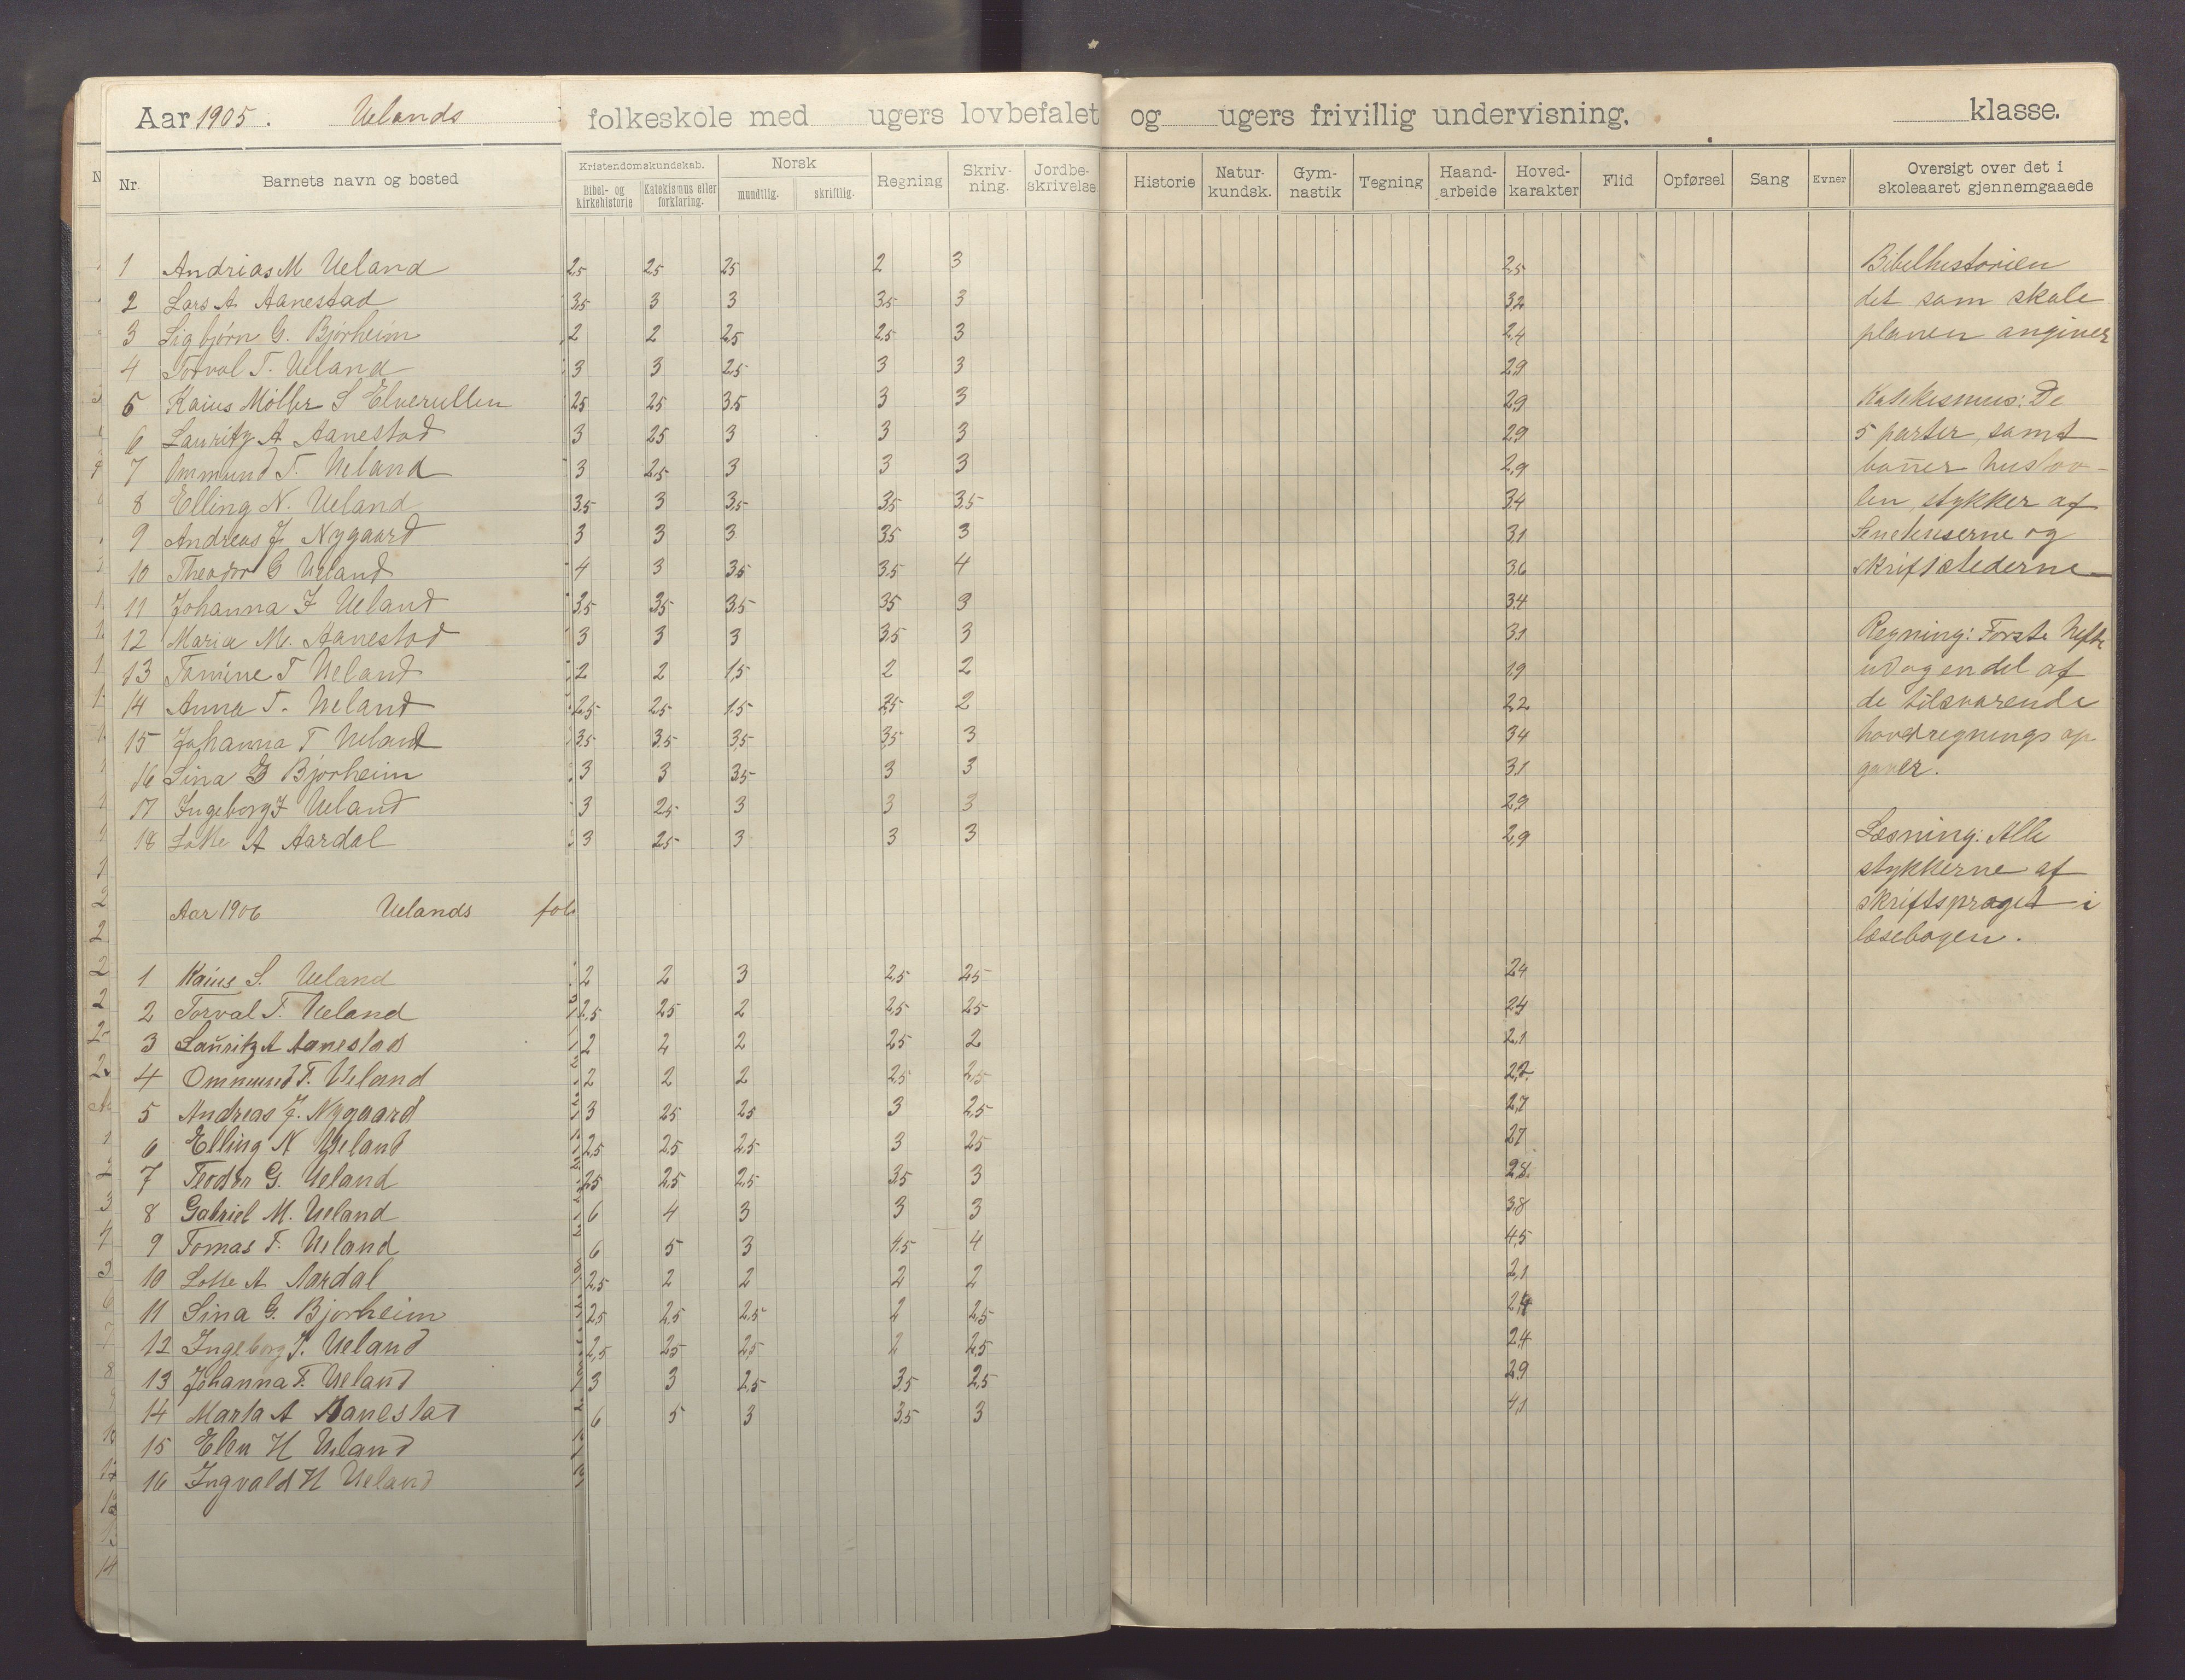 Aar 1905. Uelands folkeskole med ugers lovbefalet og ugers frivillig undervisning, klasse.
Nr. Barnets navn og bosted Kristendomskundskab. Bibel- og kirkehistorie Katekismus eller forklaring. Norsk mundtlig. skriftlig. Regning Skriv-ning. Jordbe-skrivelse Historie Natur-kundsk. Gym-nastik Tegning Haand-arbeide Hoved-karakter Flid Opførsel Sang Evner Oversigt over det i skoleaaret gjennemgaaede
1 Andrias M Ueland 2,5 2,5 2,5 2 3 2,5 Bibelhistorien
2 Lars A Aanestad 3,5 3 3 3,5 3 3,2 det som skole
3 Sigbjørn G. Bjørheim 2 2 2,5 2,5 3 2,4 planen angiver
4 Torval T. Ueland 3 3 2,5 3 3 2,9
5 Kaius Möller S 2,5 2,5 3,5 3 3 2,9 Katekismus: De
6 Lauritz A Aanestad 3 2,5 3 3 3 2,9 5 parter, samt
7 Ommund T. Ueland 3 2,5 3 3 3 2,9 bøner hustav-
8 Elling N. Ueland 3,5 3 3,5 3,5 3,5 3,4 len, stykker af
9 Andreas J Nygaard 3 3 3 3,5 3 3,1 og
10 Theodor G Ueland 4 3 3,5 3,5 4 3,6 skriftstederne
11 Johanna J Ueland 3,5 3,5 3,5 3,5 3 3,4
12 Maria M. Aanestad 3 3 3 3,5 3 3,1 Regning: Første hefte
13 Tomine T Ueland 2 2 1,5 2 2 1,9 ud og en del af
14 Anna T. Ueland 2,5 2,5 1,5 2,5 2 2,2 de tilsvarende
15 Johanna T Ueland 3,5 3,5 3,5 3,5 3 3,4 hovedregnings op
16 Sina G Bjorheim 3 3 3,5 3 3 3,1 gaver.
17 Ingeborg J Ueland 3 2,5 3 3 3 2,9
18 Lotte A Aardal 3 2,5 3 3 3 2,9 Læsning: Alle
stykkerne af
Aar 1906 Uelands fol skriftsproget i
læsebogen.
1 Kaius S. Ueland 2 2 3 2,5 2,5 2,4
2 Torval T. Ueland 2,5 2,5 2 2,5 2,5 2,4
3 Lauritz A Aanestad 2 2 2 2,5 2 2,1
4 Ommund T. Ueland 2 2 2 2,5 2,5 2,2
5 Andreas J. Nygaard 3 2,5 2,5 3 2,5 2,7
6 Elling N Ueland 2,5 2,5 2,5 3 2,5 2,7
7 Teodor G. Ueland 2,5 2,5 2,5 3,5 3 2,8
8 Gabriel M. Ueland 6 4 3 3 3 3,8
9 Tomas T. Ueland 6 5 3 4,5 4 4,5
10 Lotte A Aardal 2,5 2 2 2 2 2,1
11 Sina G. Bjorheim 2,5 2,5 2,5 2 2,5 2,4
12 Ingeborg J. Ueland 2,5 2,5 2,5 2 2,5 2,4
13 Johanna T. Ueland 3 3 2,5 3,5 2,5 2,9
14 Marta A Aanestad 6 5 3 3,5 3 4,1
15 Elen H Ueland
16 Ingvald H Ueland